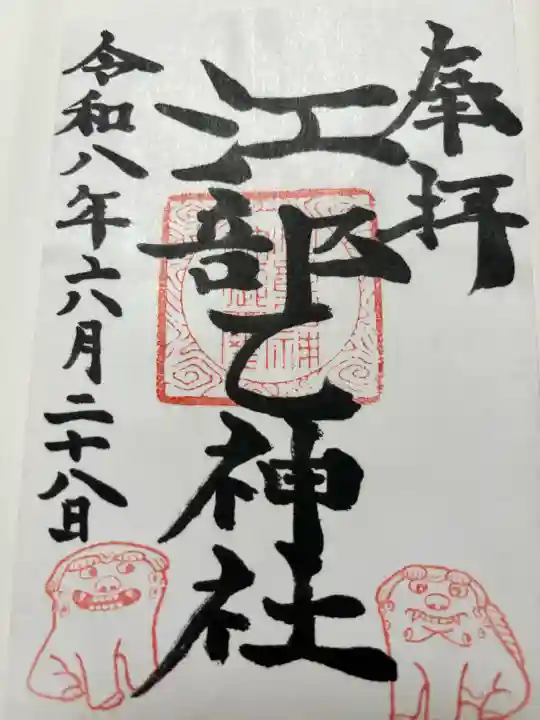 奉拝
江部乙神社
令和八年六月二十八日